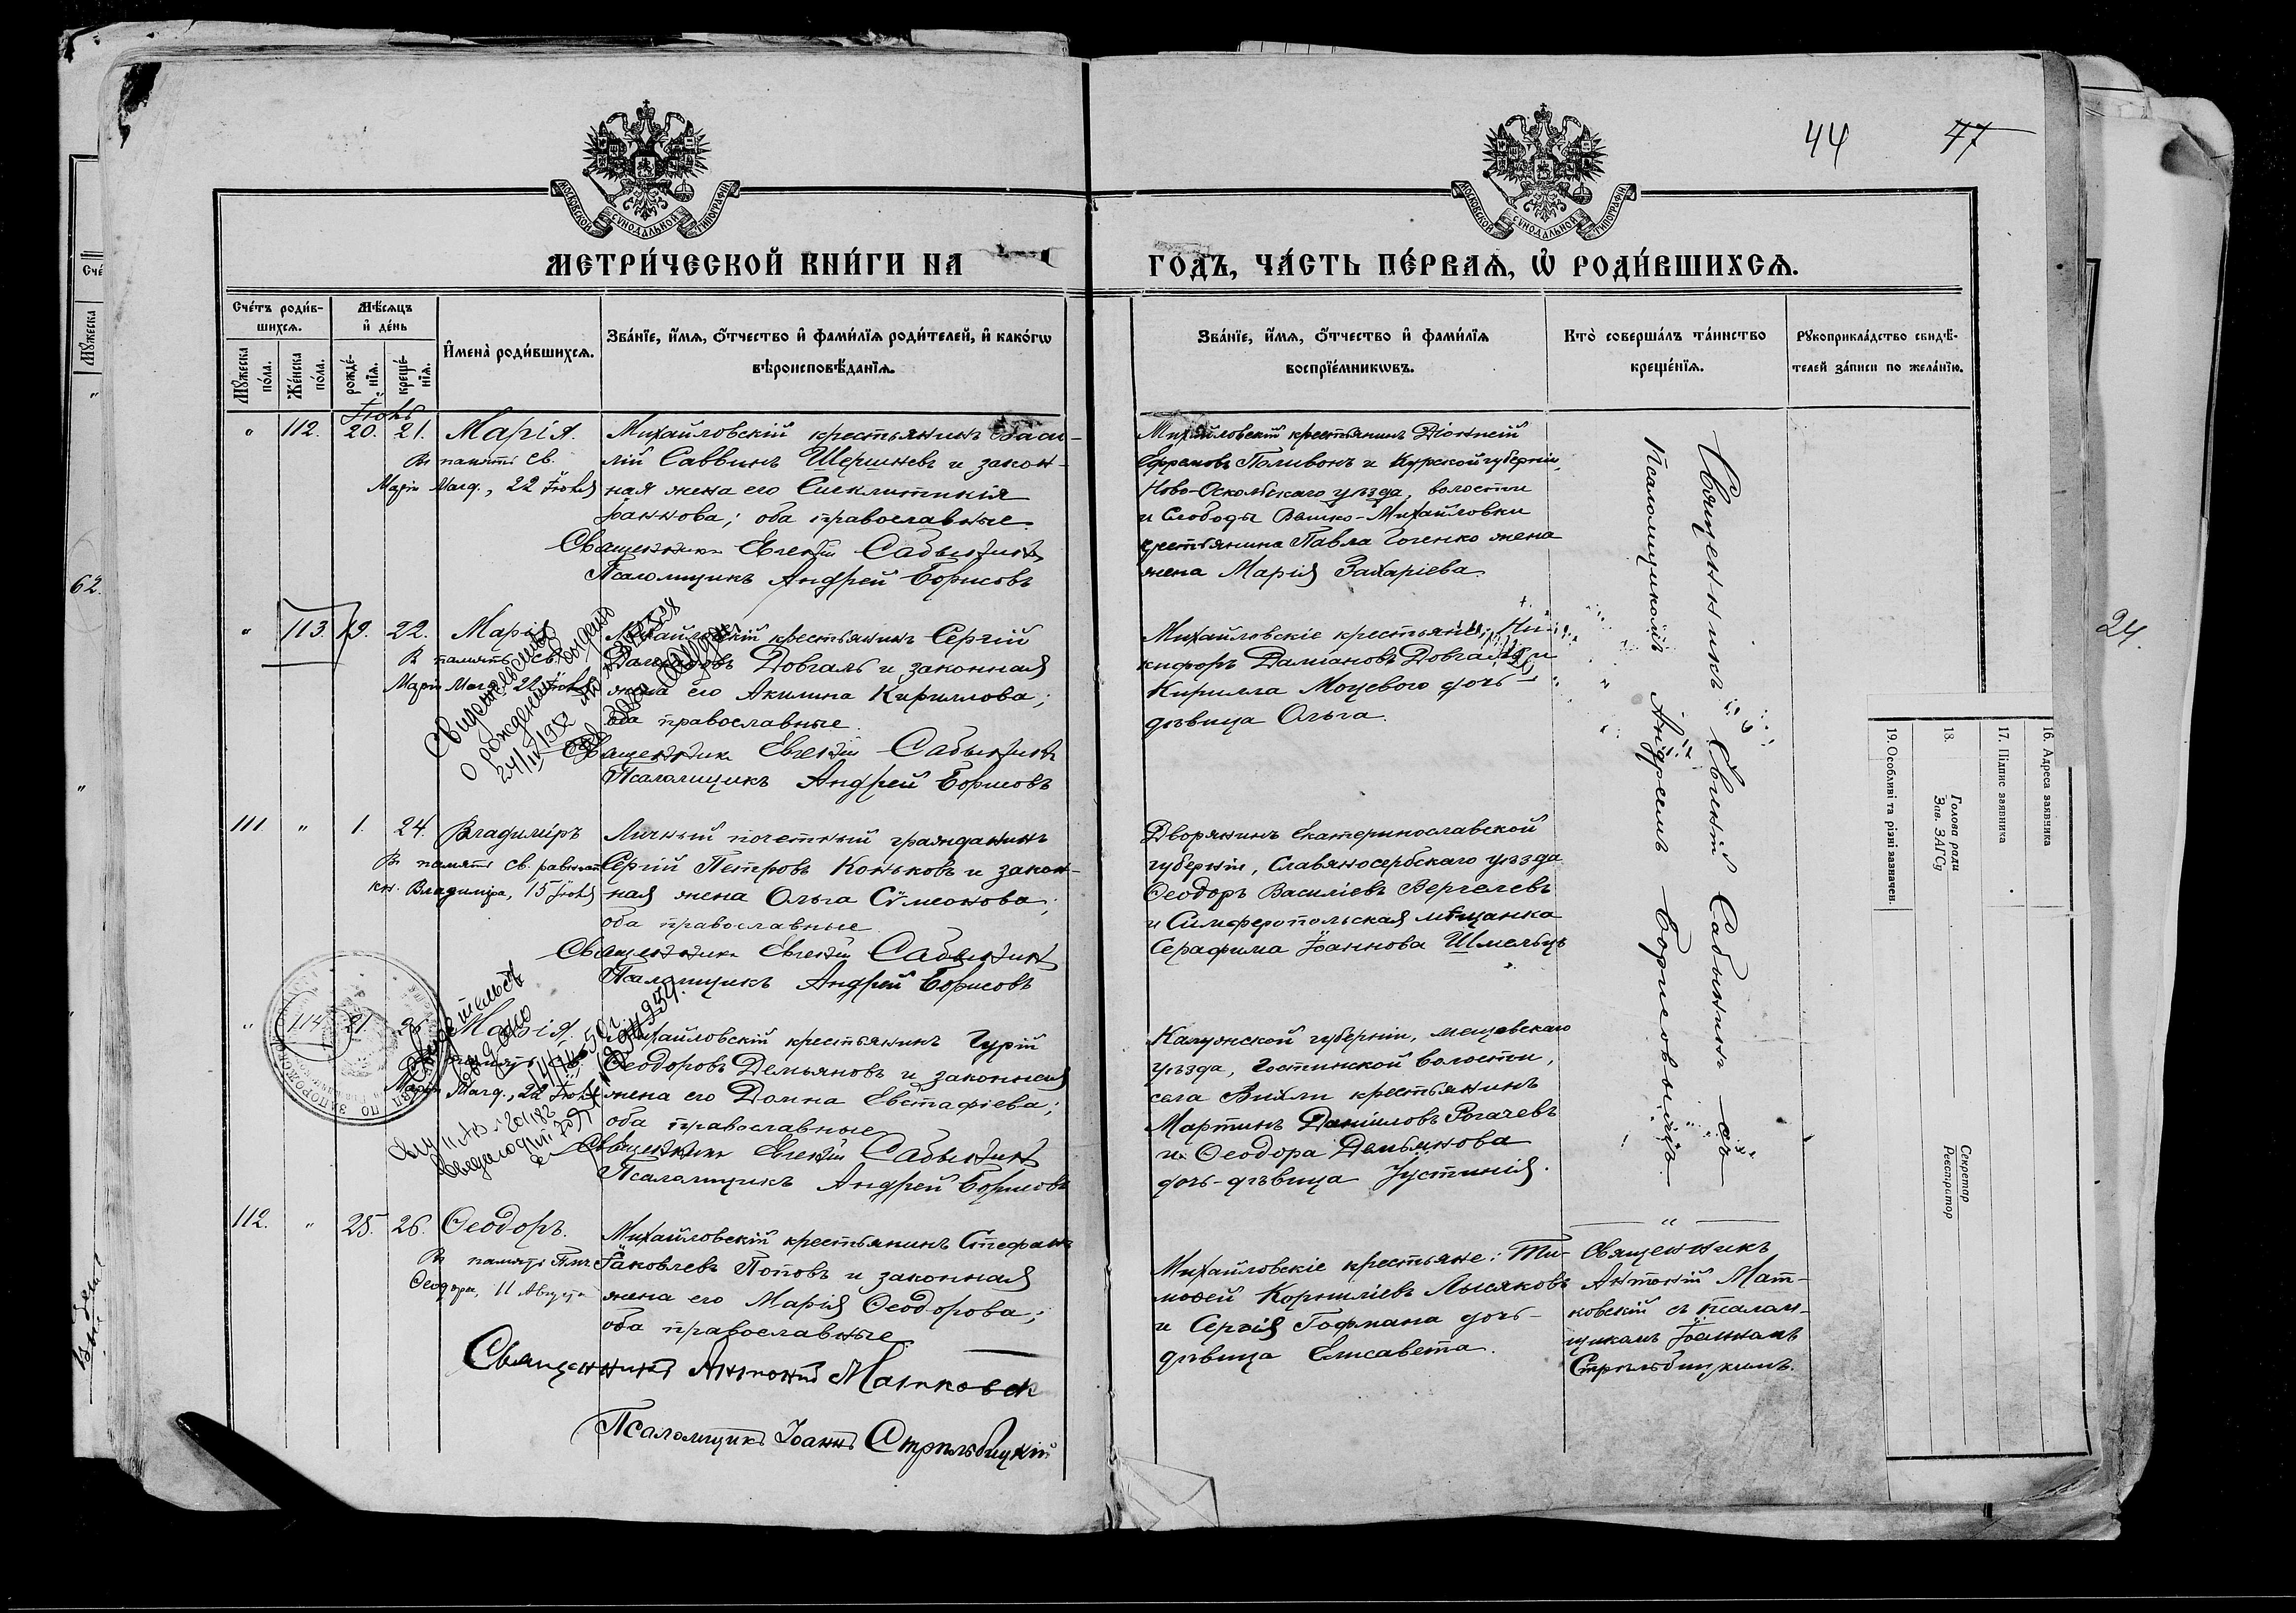 44 77
МОСКОВСКОЙ СѴНОДАЛЬНОЙ ТИПОГРАФІИ
МОСКОВСКОЙ СѴНОДАЛЬНОЙ ТИПОГРАФІИ
МЕТРИ́ЧЕСКОЙ КНИ́ГИ НА
ГО́ДЪ, ЧА́СТЬ ПЕ́РВАѦ, Ѽ РОДИ́ВШИХСѦ.
Сче́тъ роди́в-
шихсѧ.
Мꙋжеска по́ла.
Же́нска по́ла.
Мѣсѧцъ
и҆ де́нь
рожде́-нїѧ.
креще́-нїѧ.
И҆мена̀ роди́вшихсѧ.
Зва́нїе, и҆́мѧ, ѻ҆́тчество и҆ фами́лїѧ роди́телей, и҆ како́гѡ
вѣроисповѣ́данїѧ.
Зва́нїе, и҆́мѧ, ѻ҆́тчество и҆ фами́лїѧ
воспрїе́мникѡвъ.
Кто̀ соверша́лъ та́инство
креще́нїѧ.
Рꙋкоприкла́дство свидѣ́-
телей за́писи по жела́нїю.
Іюль
" 112. 20. 21. Марія.
Въ память св.
Маріи Магд., 22 Іюля
Михайловскій крестьянинъ Васи-
лій Саввинъ Шершневъ и закон-
ная жена его Сигклитикія
Іоаннова; оба православные.
Священникъ Евгеній Сабынинъ
Псаломщикъ Андрей Борисовъ
Михайловскій крестьянинъ Діонисій
Ефремовъ Поливонъ и Курской губерніи,
Ново-Оскольскаго уѣзда, волости
и Слободы Волько-Михайловки
крестьянина Павла Гоенко жена
жена Марія Захаріева.
" 113. 19. 22. Марія
Въ память св.
Маріи Магд. 22 Іюля
Михайловскій крестьянинъ Сергій
Даміановъ Довгаль и законная
жена его Акилина Кириллова;
оба православные
Священникъ Евгеній Сабынинъ
Псаломщикъ Андрей Борисовъ
Свидетельство
о рождении выдано
Михайловскіе крестьяне: Ни-
кифоръ Даміановъ Довгаль и
Кирилла Моцевого дочь -
дѣвица Ольга.
111. " 1. 24. Владиміръ
Въ память св. равноап.
кн. Владиміра, 15 Іюля
Личный почетный гражданинъ
Сергій Петровъ Коньковъ и закон-
ная жена Ольга Сѵмеонова;
оба православные.
Священникъ Евгеній Сабынинъ
Псаломщикъ Андрей Борисовъ
Дворянинъ Екатеринославской
губерніи, Славяносербскаго уѣзда
Ѳеодоръ Василіевъ Вергелевъ
и Симферопольская мѣщанка
Серафима Іоаннова Шмельцъ
" 114. 21. 25 Марія.
Маріи Магд., 22 Іюля
Михайловскій крестьянинъ Гурій
Ѳеодоровъ Демьяновъ и законная
жена его Домна Евстафіева;
оба православные
Священникъ Евгеній Сабынинъ
Псаломщикъ Андрей Борисовъ
Калужской губерніи, Мещовскаго
уѣзда, Гостинской волости,
села Вихли крестьянинъ
Мартинъ Даніиловъ Рогачевъ
и Ѳеодора Демьянова
дочь-дѣвица Іустинія.
112. " 25. 26. Ѳеодоръ.
Въ память
Ѳеодора, 11 Августа
Михайловскій крестьянинъ Стефанъ
Іаковлевъ Поповъ и законная
жена его Марія Ѳеодорова;
оба православные
Священникъ Антоній Матковск
Псаломщикъ Іоаннъ Стрѣльбицкій
Михайловскіе крестьяне: Ти-
моѳей Корниліевъ Лысяковъ
и Сергія Гофмана дочь-
дѣвица Елисавета.
Священникъ Евгеній Сабынинъ съ
Псаломщикомъ Андреемъ Борисовымъ.
"
Священникъ
Антоній Мат-
ковскій съ псалом-
щикомъ Іоанномъ
Стрѣльбицкимъ.
62.
24.
16. Адреса заявника
17. Підпис заявника
18. Голова ради
Зав. ЗАГСу
Секретар
Реєстратор
19. Особливі та різні зазначен.